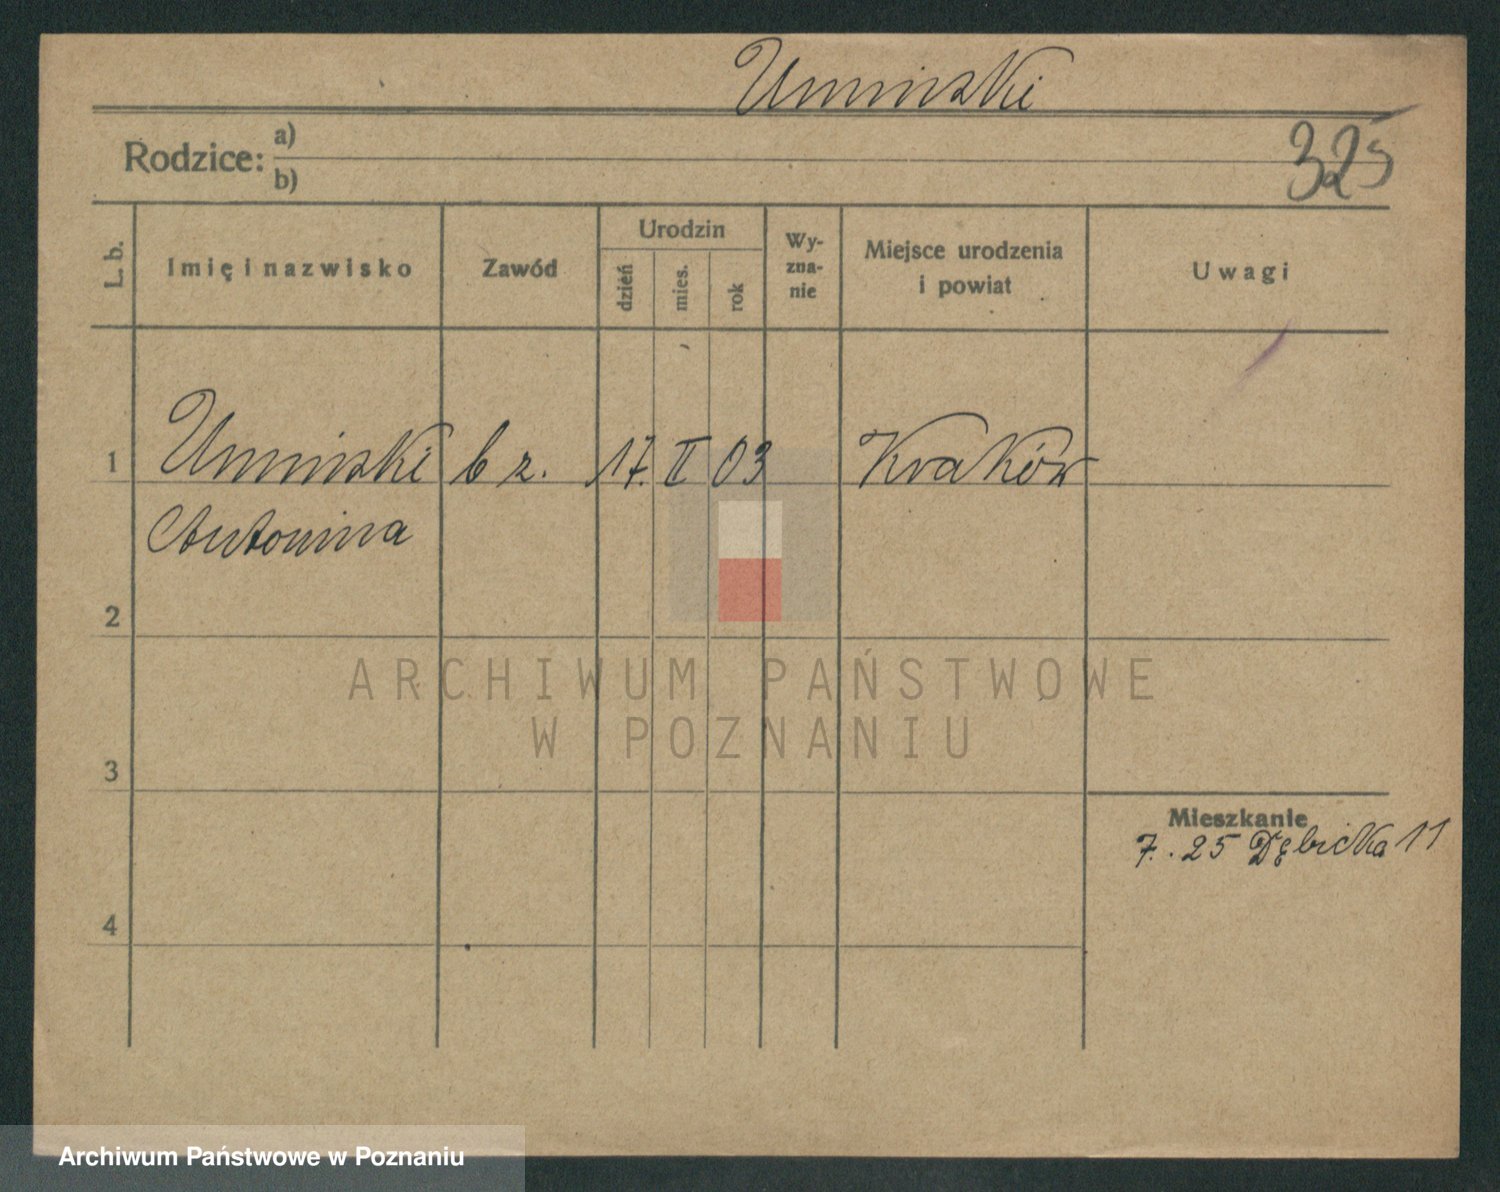 Umiński
325
Rodzice: a)
b)
L. b.
Imię i nazwisko
Zawód
Urodzin
dzień
mies.
rok
Wy-
zna-
nie
Miejsce urodzenia
i powiat
Uwagi
1 Umiński b z. 17. II 03 Kraków
Antonina
2
3
4
Mieszkanie
7. . 25 Dębicka 11
ARCHIWUM PAŃSTWOWE
W POZNANIU
Archiwum Państwowe w Poznaniu